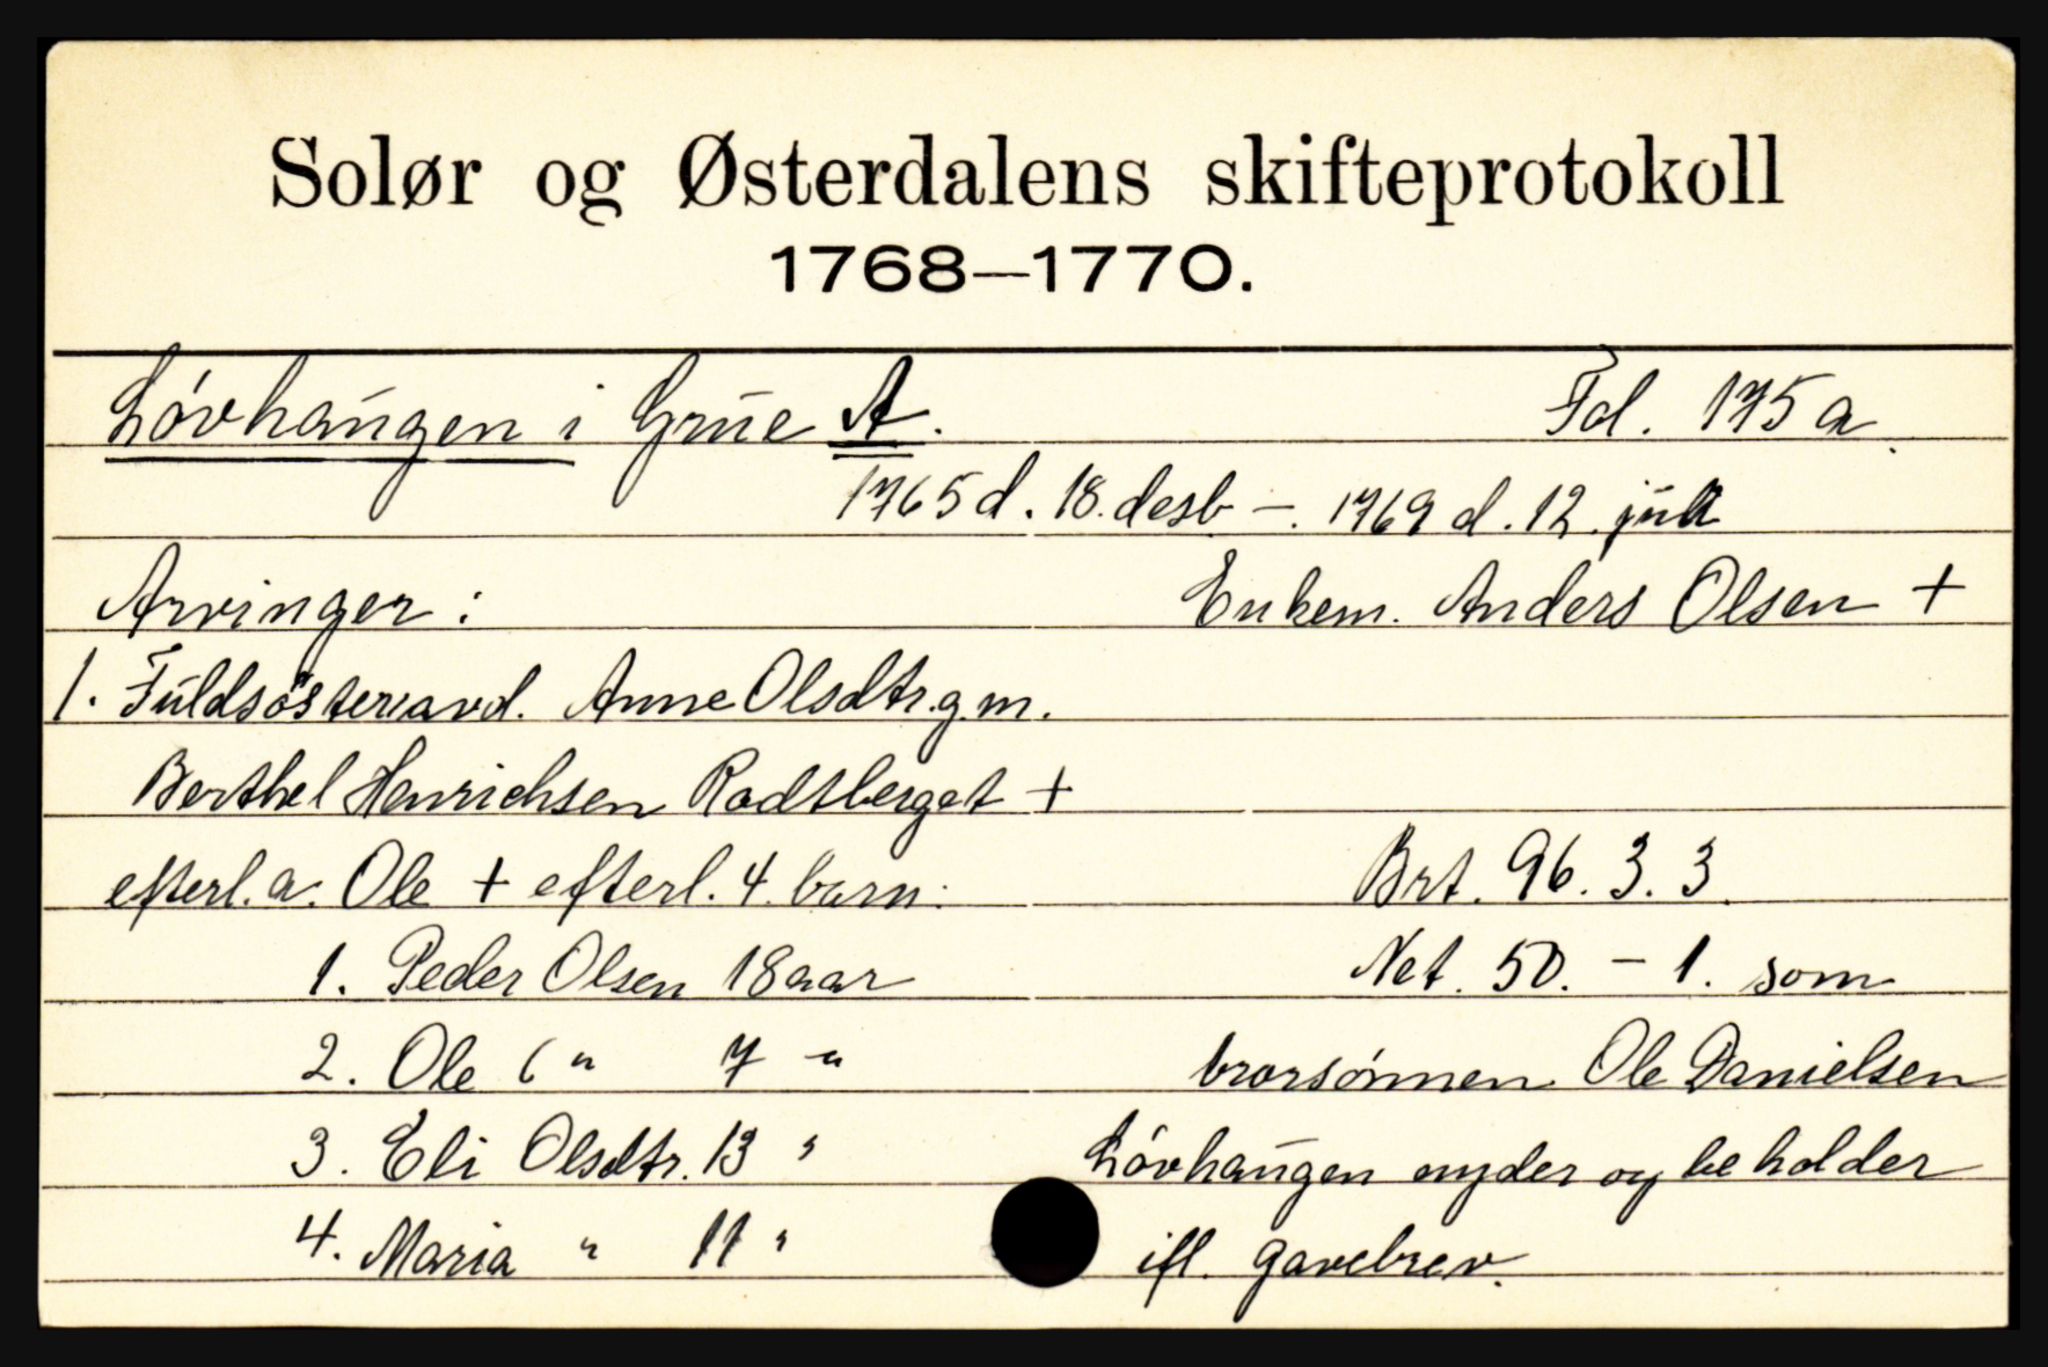 Solør og Østerdalens skifteprotokoll
1768—1770.
Lóvhaugen i Grue A. Fol. 175 a.
1765 d. 18. desb -. 1769 d. 12. juli
Arvinger: Enkem. Anders Olsen +
1. Fuldsösteravd. Anne Olsdtr. g. m.
Berthel Henrichsen Rodtsberget +
efterl. a. Ole + efterl. 4. barn:
Brt. 96. 3. 3.
1. Peder Olsen 18 aar
Net. 50. - 1. som
2. Ole " 7 "
brorsónnen Ole Danielsen
3. Eli Olsdtr. 13 "
Lóvhaugen nyder og beholder
4. Maria " 11 "
ifl. gavebrev.